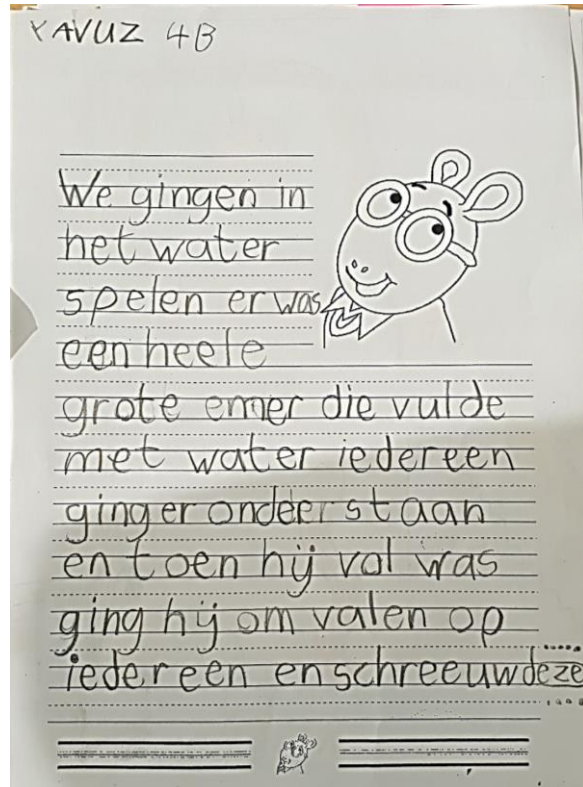 YAVUZ 4B
We gingen in
het water
spelen er was
een heele
grote emer die vulde
met water iedereen
ging er onder staan
en toen hij vol was
ging hij om valen op
iedereen en schreeuwdeze